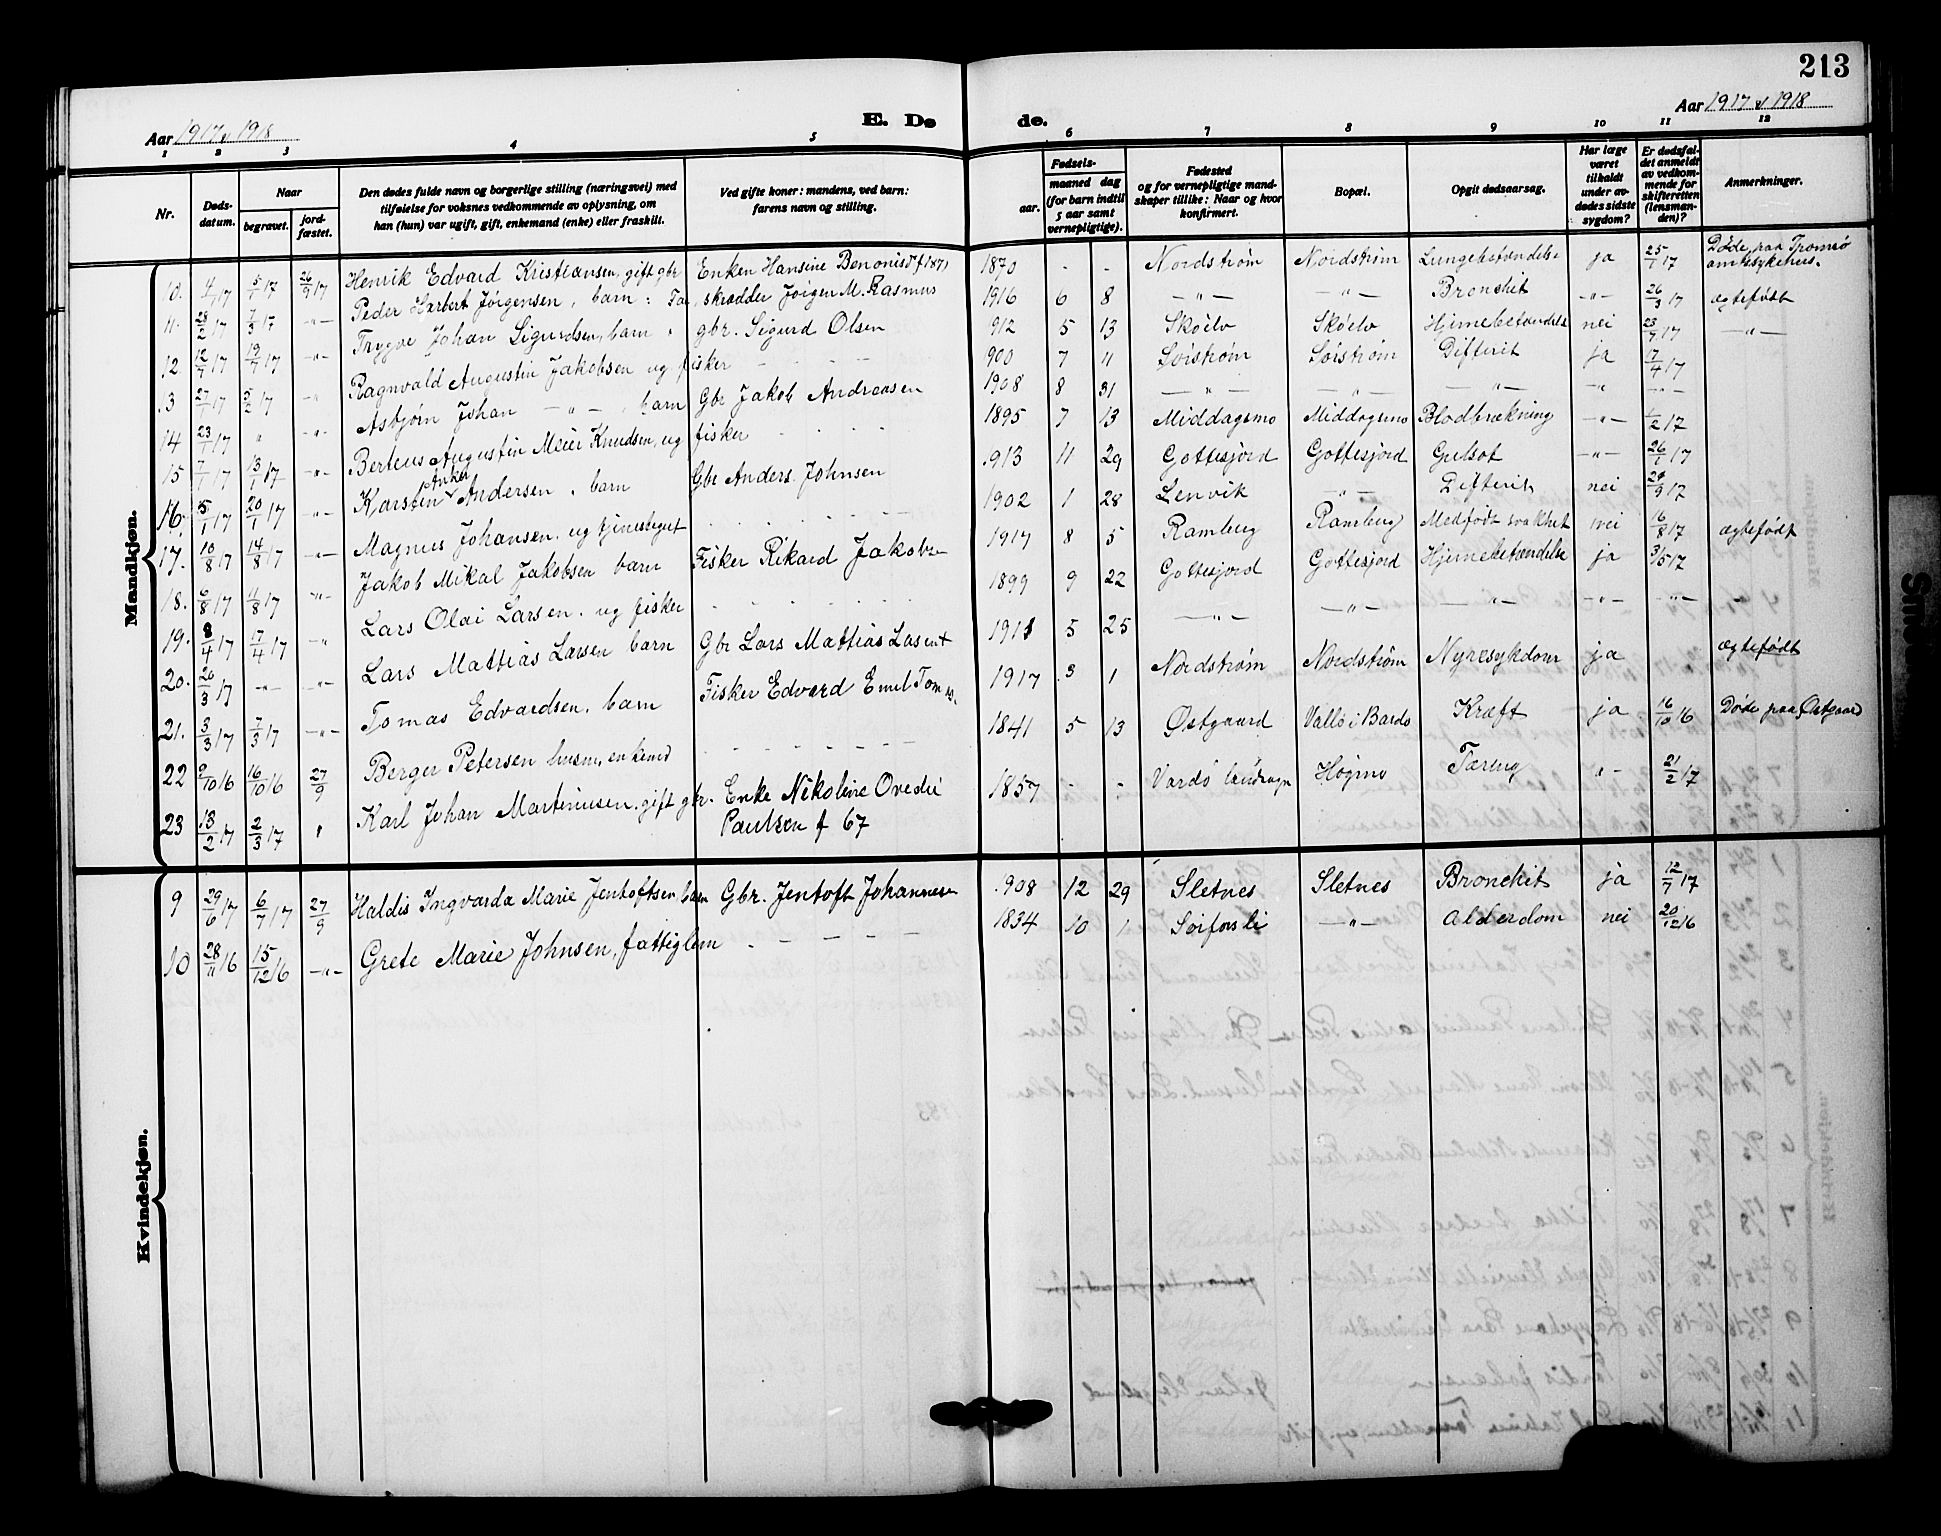 213
Aar 1917 & 1918
E. Døde.
Aar 1917 & 1918
1 2 3 4 5 6 7 8 9 10 11 12
Nr.
Døds-datum.
Naar
begravet.
jord-fæstet.
Den dødes fulde navn og borgerlige stilling (næringsvei) med
tilføielse for voksnes vedkommende av oplysning, om
han (hun) var ugift, gift, enkemand (enke) eller fraskilt.
Ved gifte koner: mandens, ved barn:
farens navn og stilling.
Fødsels-
aar.
maaned dag
(for barn indtil
5 aar samt
vernepligtige).
Fødested
og for vernepligtige mand-
skaper tillike: Naar og hvor
konfirmert.
Bopæl.
Opgit dødsaarsag.
Har læge
været
tilkaldt
under av-
dødes sidste
sygdom?
Er dødsfal-
det anmeldt
av vedkom-
mende for
skifteretten
(lensman-
den)?
Anmerkninger.
Mandkjøn.
10. 4/7 17 5/7 17 26/9 17 Henrik Edvard Kristiansen, gift gbr Enken Hansine Benonisd f 1871 1870 - - Nordstrøm Nordstrøm Lungebetændelse ja 25/7 17 Døde paa Tromsø amtssykehus.
11. 28/2 17 7/3 17 -"- Peder Herbert Jørgensen, barn: Far, skrædder Jørgen M. Rasmus 1916 6 8 -"- -"- Bronchit -"- 26/3 17 ægtefødt
12 12/7 17 19/7 17 -"- Trygve Johan Sigurdsen, barn gbr. Sigurd Olsen 912 5 13 Sköelv Sköelv Hjernebetændelse nei 23/7 17 -"-
13 27/1 17 5/2 17 -"- Ragnvald Augustin Jakobsen ug fisker 900 7 11 Sørstrøm Sørstrøm Difterit ja 17/4 17
14 23/1 17 " -"- Asbjørn Johan -"- , barn Gbr Jakob Andreasen 1908 8 31 -"- -"- -"- -"- -"-
15 7/1 17 13/1 17 -"- Berteus Augustin Meier Knudsen, ug fisker 1895 7 13 Middagsmo Middagsmo Blodbrækning -"- 1/2 17
16. 15/1 17 20/1 17 -"- Karsten Anker Andersen, barn Gbr Anders Johnsen 913 11 29 Gottesjord Gottesjord Gulsot -"- 26/1 17
17. 10/8 17 14/8 17 -"- Magnus Johansen, ug tjenestegut 1902 1 28 Lenvik -"- Difterit nei 24/9 17
18. 6/8 17 11/8 17 -"- Jakob Mikal Jakobsen barn Fisker Rikard Jakobsen 1917 8 5 Ramberg Ramberg Medfødt svakhet nei 16/8 17 ægtefødt
19. 8/4 17 17/4 17 -"- Lars Olai Larsen. ug fisker 1899 9 22 Gottesjord Gottesjord Hjernebetændelse ja 3/5 17
20. 20/3 17 -"- -"- Lars Mattias Larsen barn Gbr Lars Mattias Larsen 1911 5 25 -"- -"- -"- -"- -"-
21. 3/3 17 7/3 17 -"- Tomas Edvardsen, barn Fisker Edvard Emel Tomas. 1917 3 1 Nordstrøm Nordstrøm Nyresykdom ja ægtefødt
22 9/10 16 16/10 16 27/9 Berger Petersen husm, enkemd 1841 5 13 Østgaard Vallø i Bardo Kræft ja 16/10 16 Døde paa Østgaard
23 13/2 17 2/3 17 " Karl Johan Martinusen, gift gbr. Enke Nikoline Ovedie Paulsen f 67 1857 - - Vardø landsogn Høgmo Tæring "- 21/2 17
Kvindekjøn.
9 29/6 17 6/7 17 27/9 Haldis Ingvarda Marie Jentoftsen, barn Gbr. Jentoft Johannesen 908 12 29 Sletnes Sletnes Bronchit ja 12/7 17
10 28/11 16 15/12 16 -"- Grete Marie Johnsen, fattiglem 1834 10 1 Sørforsli -"- Alderdom nei 20/12 16